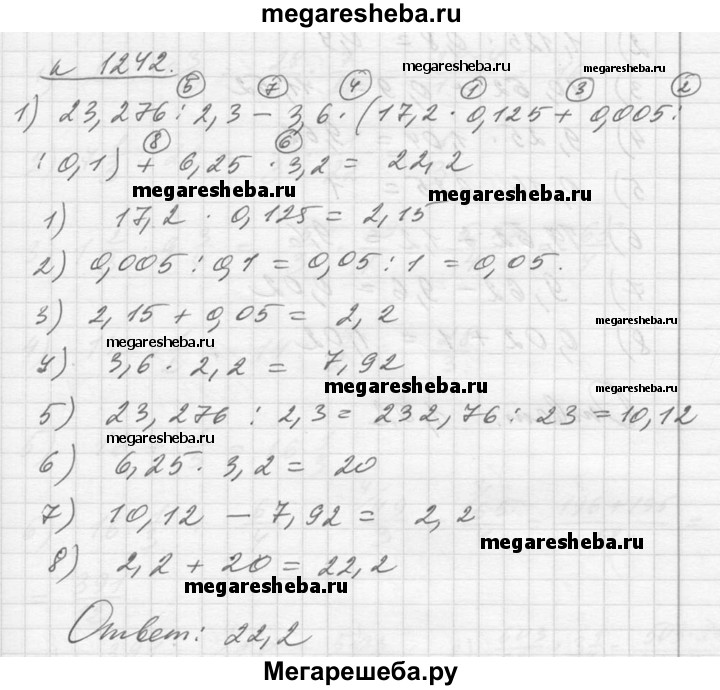 megaresheba.ru
н 1242.
megaresheba.ru
megaresheba.ru
5 7 4 1 3 2
1) 23,276 : 2,3 − 3,6 · (17,2 · 0,125 + 0,005 :
8 6
: 0,1) + 6,25 · 3,2 = 22,2
megaresheba.ru
megaresheba.ru
1) 17,2 · 0,125 = 2,15
2) 0,005 : 0,1 = 0,05 : 1 = 0,05.
3) 2,15 + 0,05 = 2,2
megaresheba.ru
megaresheba.ru
4) 3,6 · 2,2 = 7,92
megaresheba.ru
megaresheba.ru
5) 23,276 : 2,3 = 232,76 : 23 = 10,12
megaresheba.ru
6) 6,25 · 3,2 = 20
7) 10,12 − 7,92 = 2,2
megaresheba.ru
8) 2,2 + 20 = 22,2
megaresheba.ru
Ответ: 22,2
Мегарешеба.ру